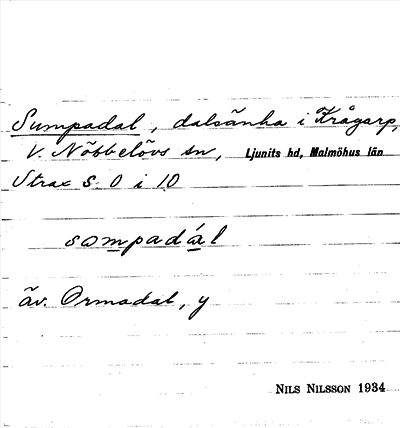 Sumpadal, dalsänka i Krågarp,
V. Nöbbelövs sn, Ljunits hd, Malmöhus län
Strax S. O i 10
sompadál
äv. Ormadal, y
NILS NILSSON 1934